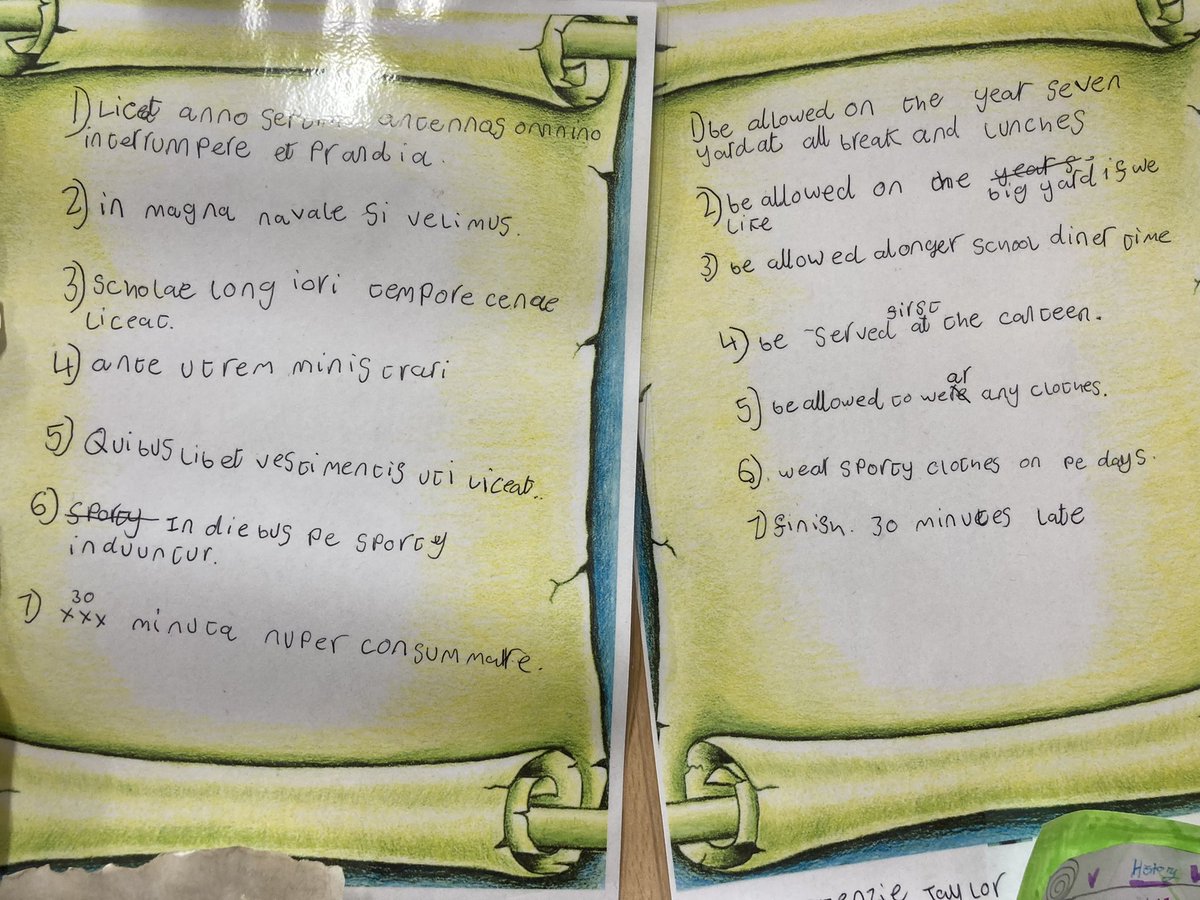 1) Licet anno antennas omnino
interrumpere et Prandia.
2) in magna navale si velimus.
3) Scholae long iori tempore cenae
liceat.
4) ante utrem ministrari
5) Quibus libet vestimentis uti liceat..
6) sporty In diebus pe sporty
induuntur.
30
7) xxx minuta nuper consummatre.
1) be allowed on the year seven
yard at all break and lunches
2) be allowed on the year s
big yard is we
like
3) be allowed alonger school diner time
first
4) be served at the canteen.
ar
5) be allowed to were any clothes.
6). wear sporty clothes on pe days.
7) finish. 30 minutes late
enzie Taylor
History